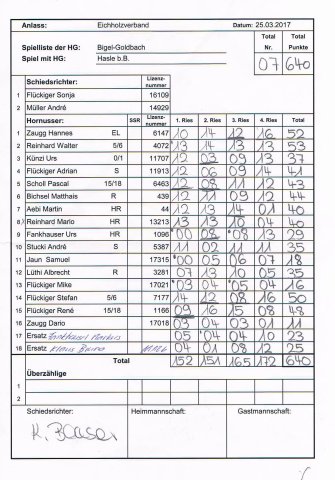 Anlass: Eichholzverband Datum: 25.03.2017
Total Total
Spielliste der HG: Bigel-Goldbach Nr. Punkte
Spiel mit HG: Hasle b.B. 07 640
Schiedsrichter: Lizenznummer
1 Flückiger Sonja 16109
2 Müller André 14929
Hornusser: SSR Lizenznummer 1. Ries 2. Ries 3. Ries 4. Ries Total
1 Zaugg Hannes EL 6147 10 14 12 16 52
2 Reinhard Walter 5/6 4072 13 14 13 13 53
3 Künzi Urs 0/1 11707 12 03 09 13 37
4 Flückiger Adrian S 11913 12 06 09 14 41
5 Scholl Pascal 15/18 6463 12 08 11 12 43
6 Bichsel Matthais R 439 12 11 09 12 44
7 Aebi Martin HR 44 12 13 14 01 40
8 Reinhard Mario HR 13213 13 13 10 04 40
9 Fankhauser Urs HR 1096 00 08 08 13 29
10 Stucki André S 5387 11 02 11 11 35
11 Jaun Samuel 17315 00 05 06 07 18
12 Lüthi Albrecht R 3281 07 13 10 05 35
13 Flückiger Mike 17021 03 04 05 04 16
14 Flückiger Stefan 5/6 7177 14 12 08 16 50
15 Flückiger René 15/18 1166 09 16 15 08 48
16 Zaugg Dario 17018 03 04 03 01 11
17 Ersatz Fankhauser Markus 05 04 04 10 23
18 Ersatz Klaus Bruno 04 01 08 12 25
Total 152 151 165 172 640
Überzählige
1
2
Schiedsrichter: Heimmannschaft: Gastmannschaft:
K. Blaser